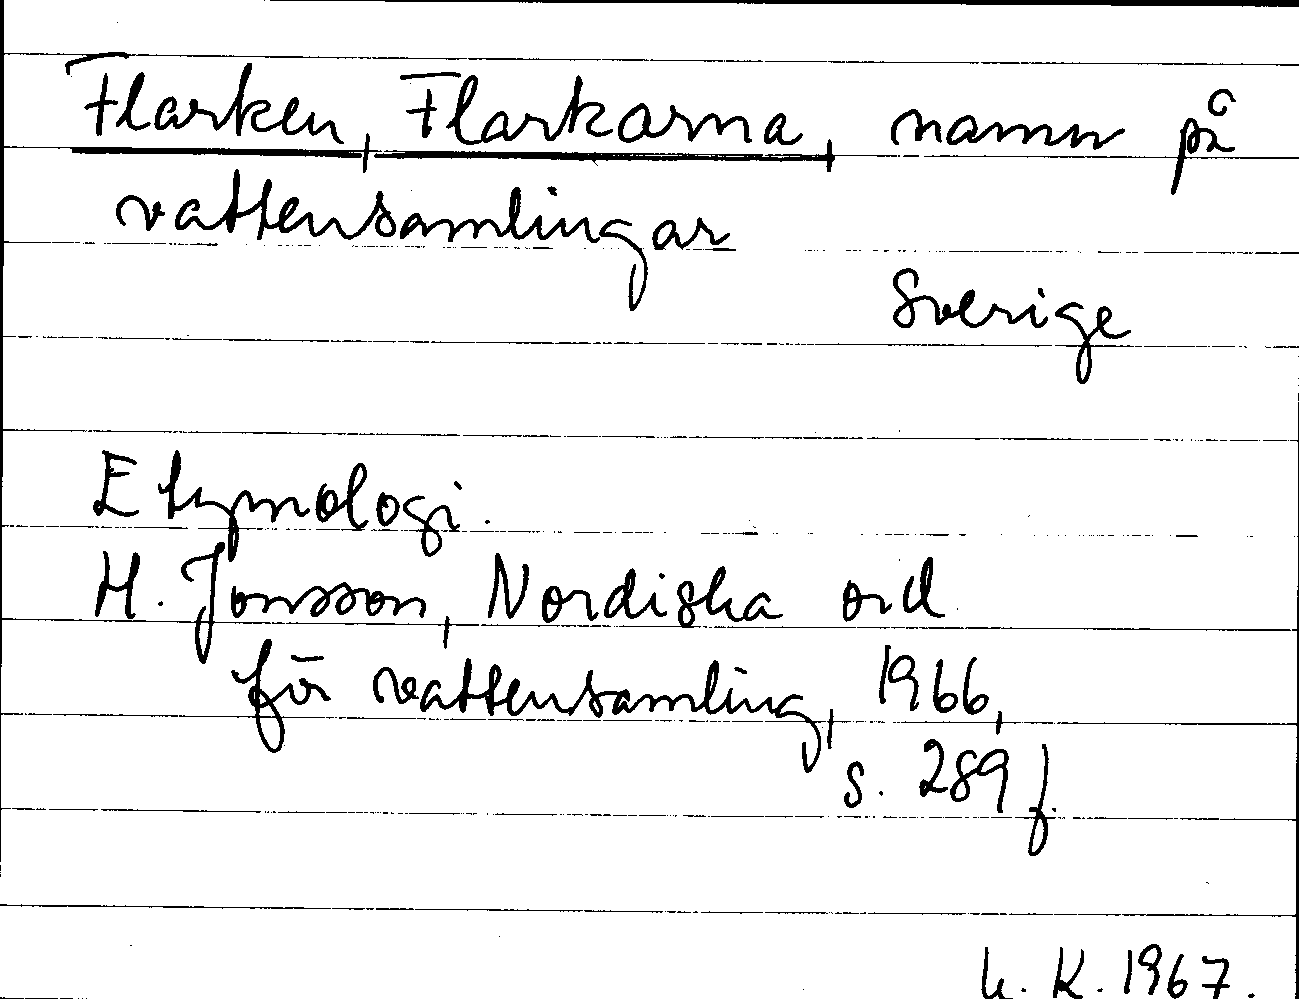 Flarken, Flarkarna, namn på
vattensamlingar
Sverige
Etymologi.
H. Jonsson, Nordiska ord
för vattensamling, 1966,
s. 289 f.
K. 1967.